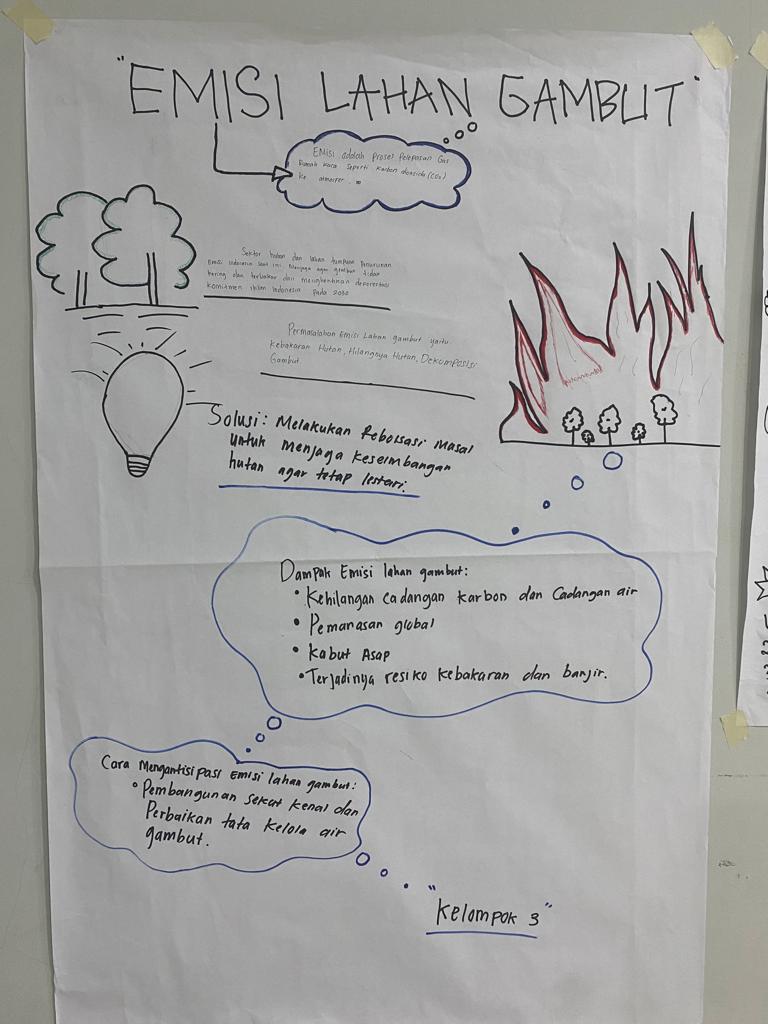 "EMISI LAHAN GAMBUT"
EMisi adalah Proses Pelepasan Gas
Rumah kaca seperti karbon dioksida (CO₂)
ke atmosfer.
Sektor hutan dan lahan tumpuan Penurunan
Emisi Indonesia saat ini. Menjaga agar gambut tidak
kering dan terbakar dan menghentikan deforestasi
komitmen iklim Indonesia pada 2030
Permasalahan Emisi Lahan gambut yaitu
Kebakaran Hutan, Hilangnya Hutan, Dekomposisi
Gambut.
Solusi: Melakukan Reboisasi Masal
untuk menjaga keseimbangan
hutan agar tetap lestari.
Dampak Emisi lahan gambut:
• Kehilangan cadangan karbon dan Cadangan air
• Pemanasan global
• Kabut Asap
• Terjadinya resiko kebakaran dan banjir.
Cara Mengantisipasi Emisi lahan gambut:
• Pembangunan sekat kanal dan
Perbaikan tata kelola air
gambut.
"Kelompok 3"